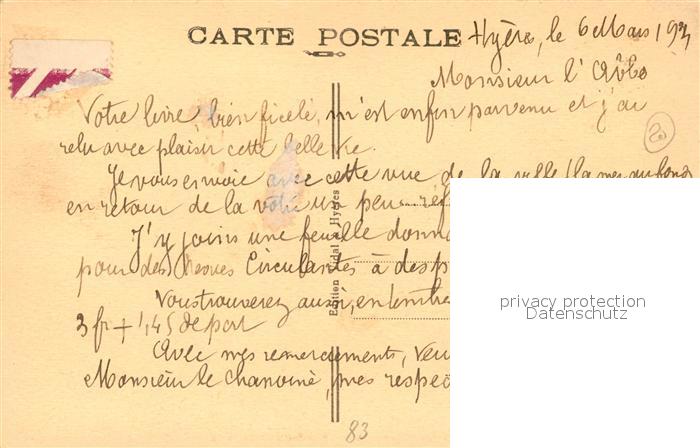 CARTE POSTALE
Hyères, le 6 Mars 193
Monsieur l'Abbé
Votre livre bien ficelé, m'est enfin parvenu et j'ai
relu avec plaisir cette belle vie.
Je vous envoie avec cette vue de la ville (la mer au fond
en retour de la vôtre un peu
J'y joins une feuille donn
pour des Revues Circulantes à des p
Vous trouverez aussi, en timbre
3 fr + 1,45 de port
Avec mes remerciements, veu
Monsieur le chanoine, mes respec
Edition Vidal Hyères
83
privacy protection
Datenschutz